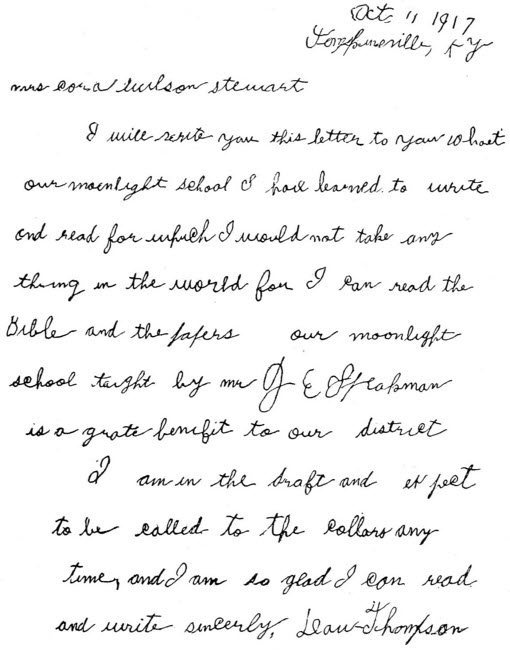 Oct, 11 1917
Tompkinsville, Ky
mrs cora wilson stewart
I will write you this letter to your whoat
our moonlight school I have learned to write
and read for whuch I would not take any
thing in the world for I can read the
Bible and the papers our moonlight
school taught by mr J E Speakman
is a grate benifit to our district
I am in the draft and expect
to be called to the collars any
time, and I am so glad I can read
and write sincerly, Thompson